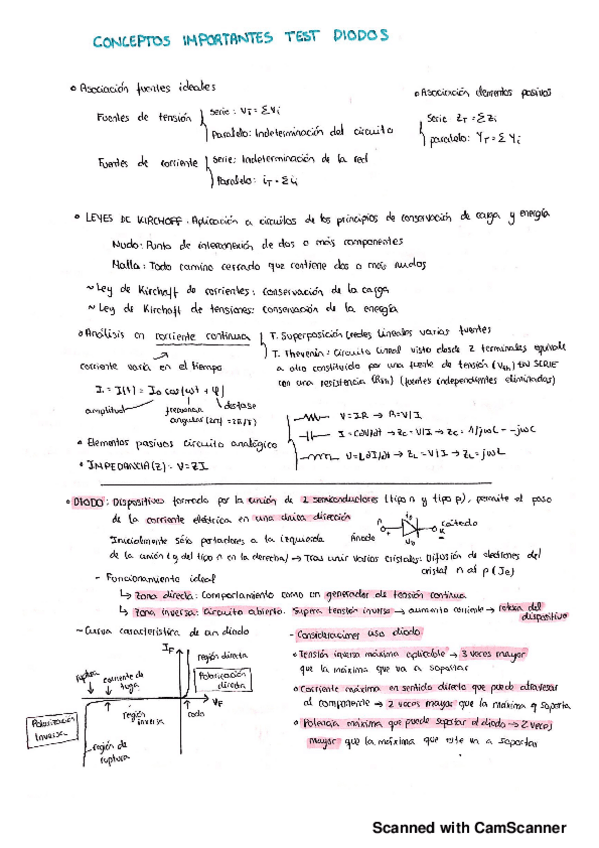 CONCEPTOS IMPORTANTES TEST DIODOS
• Asociación fuentes ideales
Fuentes de tensión
Serie: VT = ΣVi
Paralelo: Indeterminación del circuito
Fuentes de corriente
Serie: Indeterminación de la red
Paralelo: iT = Σii
• Asociación elementos pasivos
Serie ZT = ΣZi
paralelo: YT = ΣYi
• LEYES DE KIRCHOFF. Aplicación a circuitos de los principios de conservación de carga y energía
Nudo: Punto de interconexión de dos o más componentes
Malla: Todo camino cerrado que contiene dos o más nudos
~ Ley de Kirchoff de corrientes: conservación de la carga
~ Ley de Kirchoff de tensiones: conservación de la energía
• Análisis en corriente continua
T. Superposición (redes lineales varias fuentes
T. Thevenin: Circuito lineal visto desde 2 terminales equivale
a otro constituido por una fuente de tensión (Vth) EN SERIE
con una resistencia (Rth) (fuentes independientes eliminadas)
corriente varía en el tiempo
I = I(t) = I0 cos(ωt + φ)
amplitud
frecuencia
angular (2πf) = 2π/T)
desfase
• Elementos pasivos circuito analógico
V = IR → R = V/I
I = C∂V/∂t → ZC = V/I → ZC = 1/jωC = -jωC
V = L∂I/∂t → ZL = V/I → ZL = jωL
• IMPEDANCIA (Z) = V = ZI
• DIODO: Dispositivo formado por la unión de 2 semiconductores (tipo n y tipo p), permite el paso
de la corriente eléctrica en una única dirección
Ánodo
cátodo
Inicialmente sólo portadores a la izquierda
de la unión (y del tipo n en la derecha) → Tras unir varios cristales: Difusión de electrones del
cristal n al p (Je)
- Funcionamiento ideal
↳ Zona directa: Comportamiento como un generador de tensión continua
↳ Zona inversa: Circuito abierto. Supera tensión inversa → aumento corriente → rotura del
dispositivo
~ Curva característica de un diodo
IF
región directa
Polarización
directa
ruptura
corriente de
fuga
VF
región
inversa
codo
Polarización
Inversa
región de
ruptura
- Consideraciones uso diodo
• Tensión inversa máxima aplicable → 3 veces mayor
que la máxima que va a soportar
• Corriente máxima en sentido directo que puede atravesar
al componente → 2 veces mayor que la máxima q soporta
• Potencia máxima que puede soportar el diodo → 2 veces
mayor que la máxima que este va a soportar
Scanned with CamScanner